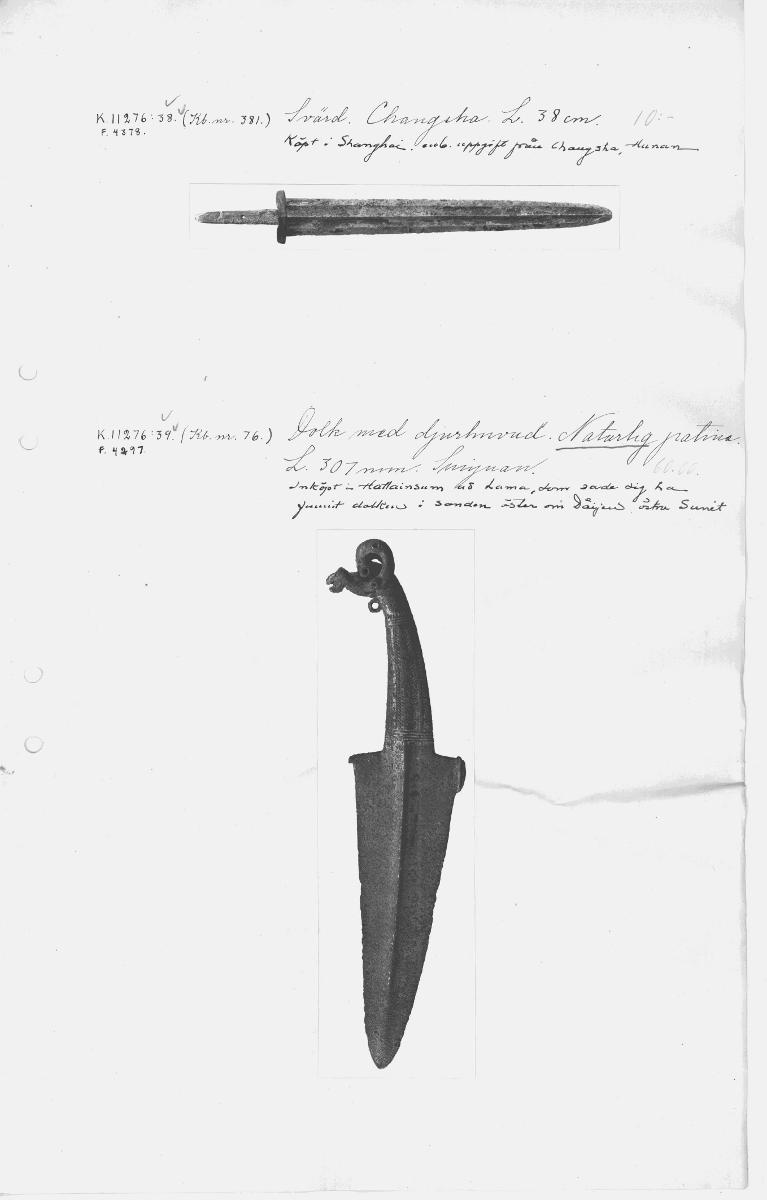 K.11276:38. (Kb. nr. 381.) Svärd. Changsha. L. 38 cm. 10:-
F. 4378. Köpt i Shanghai. enl. uppgift från Changsha, Hunan
K.11276:39. (Kb. nr. 76.) Dolk med djurhuvud. Naturlig patina.
F. 4297. L. 307 mm. Suiyuan. 60.00.
Inköpt i Hattainsum Lama, som sade sig ha
funnit dolken i sanden öster om östra Sunit